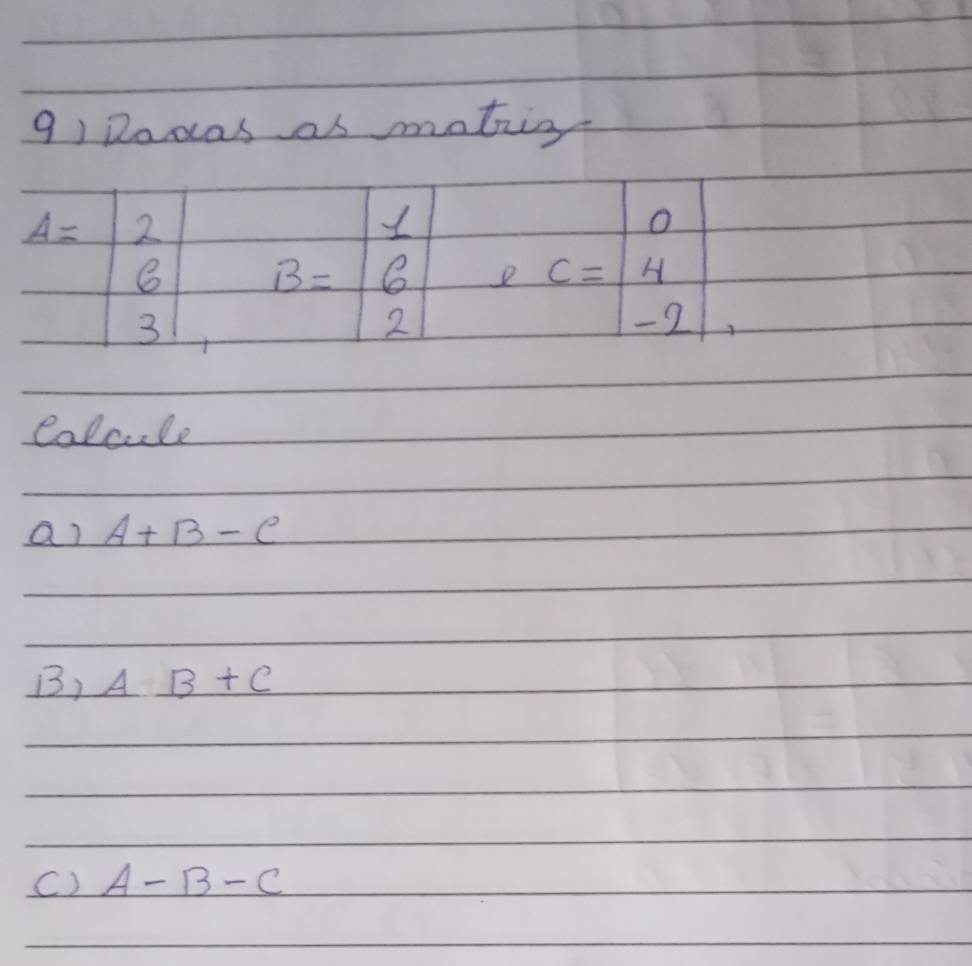 9) Dadas as matriz
A= | 2 | B= | 1 | e C= | 0 |
| 6 | | 6 | | 4 |
| 3 | , | 2 | | -2 | ,
Calcule
a) A+B-C
B) A B +C
C) A-B-C